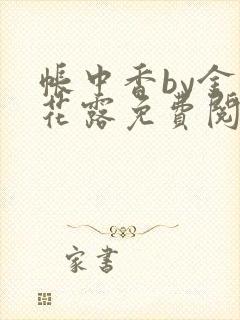 帐中香by金
花露免費閱
家書